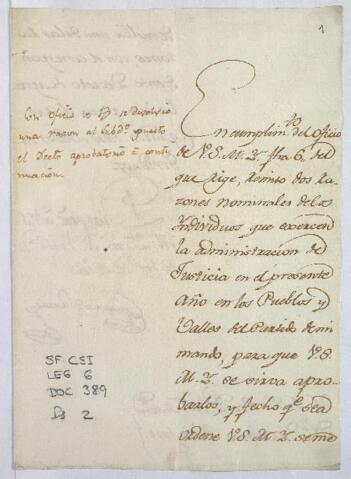 1
Con oficio de 13 se devolvio
una razon al Subdo. puesto
el Decto aprobatorio á conti-
nuacion.
En cumplimto. del Oficio
de V.S. M. Y. fha 6. del
que Rige, Remito dos Ra-
zones nominales de los
Individuos que exercen
la administracion de
Justicia en el presente
Año en los Pueblos y
Valles del Partido de mi
mando, para que V.S.
M. Y. se sirva apro-
barlos, y fecho qe. sea
ordene V.S. M. Y. se me
SF. CSI
LEG 6
DOC 389
fs 2